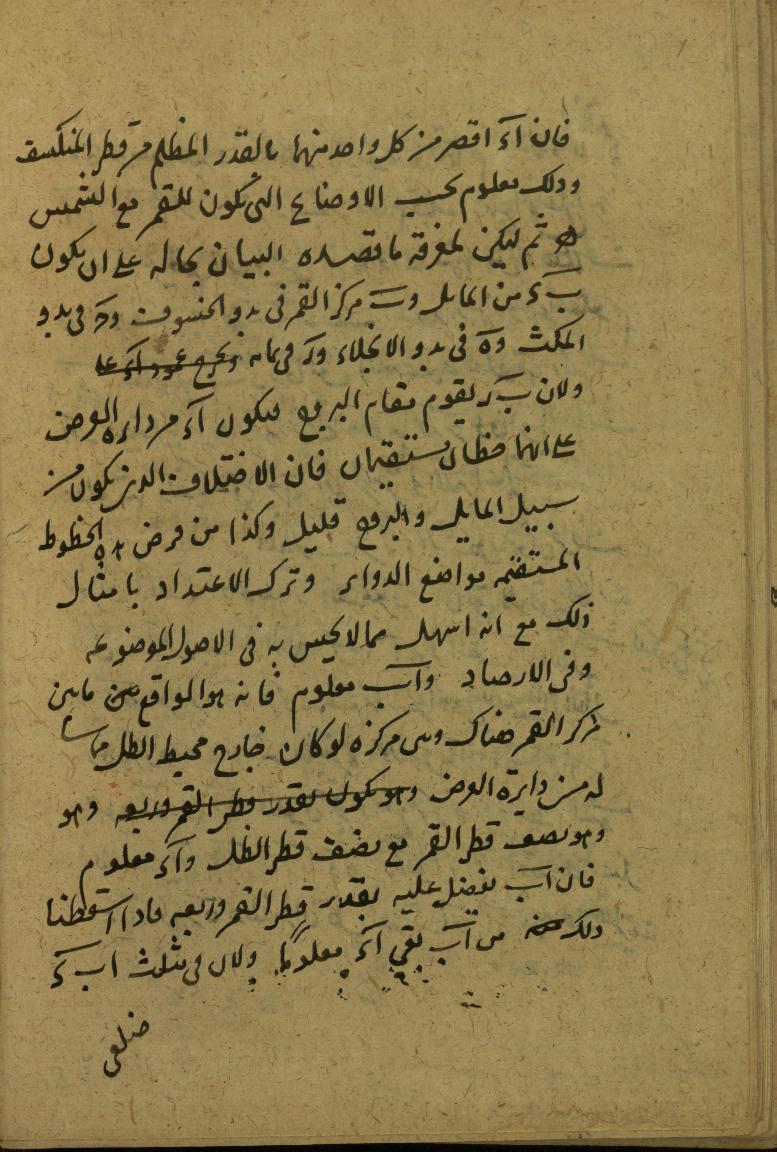 فان آء اقصر من كل واحد منهما بالقدر المظلم من قطر المنكسف
وذلك معلوم بحسب الاوضاع التى تكون للقمر مع الشمس
ثم ليكن لمعرفة ما قصده البيان بحاله على ان يكون
ب ء من المايل و ب مركز القمر فى بدو الخسوف و ح فى بدو
المكث و ه فى بدو الانجلاء و ر فى تمامه ونخرج عمود آء على
ولان ب ر يقوم مقام البروج فيكون آء من دايرة العرض
على انهما خطان مستقيمان فان الاختلاف الذى يكون من
سبيل المايل والبروج قليل وكذا من فرض هذه الخطوط
المستقيمه مواضع الدواير وترك الاعتداد بامثال
ذلك مع انه اسهل مما لا يحس به فى الاصول الموضوعه
وفى الارصاد وآب معلوم فانه هو الواقع من ما بين
مركز القمر هناك وبين مركزه لو كان خارج محيط الظل مماسا
له من دايرة العرض وهو يكون بقدر قطر القمر وربعه وهو
وهو نصف قطر القمر مع نصف قطر الظل وآء معلوم
فان آب يفضل عليه بقدر قطر القمر وربعه فاذا اسقطنا
ذلك من آب بقى آء معلوما ولان فى مثلث اب ء
ضلعى